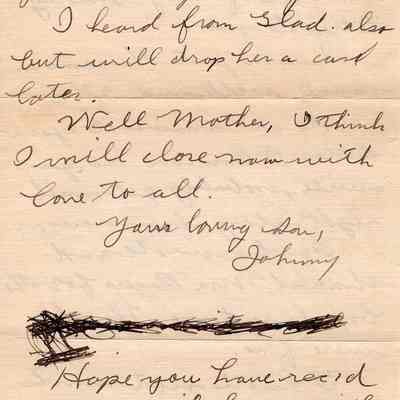 I heard from Glad. also
but will drop her a card
later.
Well Mother, I think
I will close now with
love to all.
Your loving son,
Johnny
Hope you have rec'd